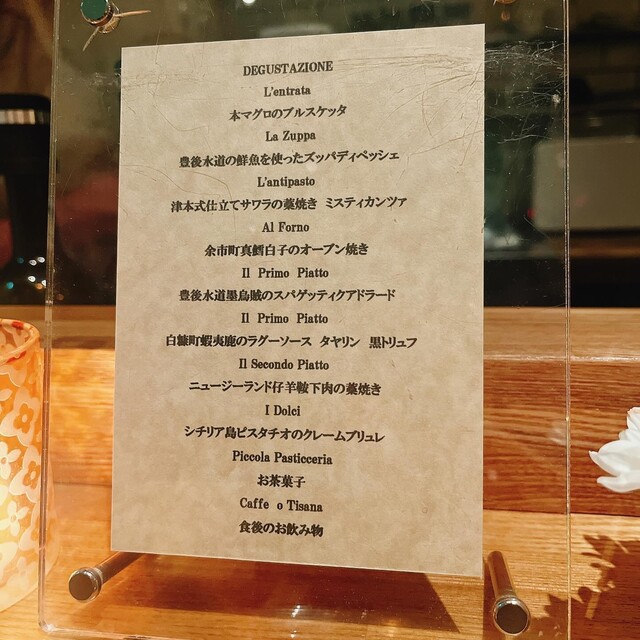 DEGUSTAZIONE
L'entrata
本マグロのブルスケッタ
La Zuppa
豊後水道の鮮魚を使ったズッパディペッシェ
L'antipasto
津本式仕立てサワラの藁焼き ミスティカンツァ
Al Forno
余市町真鱈白子のオーブン焼き
Il Primo Piatto
豊後水道墨烏賊のスパゲッティクアドラード
Il Primo Piatto
白糠町蝦夷鹿のラグーソース タヤリン 黒トリュフ
Il Secondo Piatto
ニュージーランド仔羊鞍下肉の藁焼き
I Dolci
シチリア島ピスタチオのクレームブリュレ
Piccola Pasticceria
お茶菓子
Caffe o Tisana
食後のお飲み物